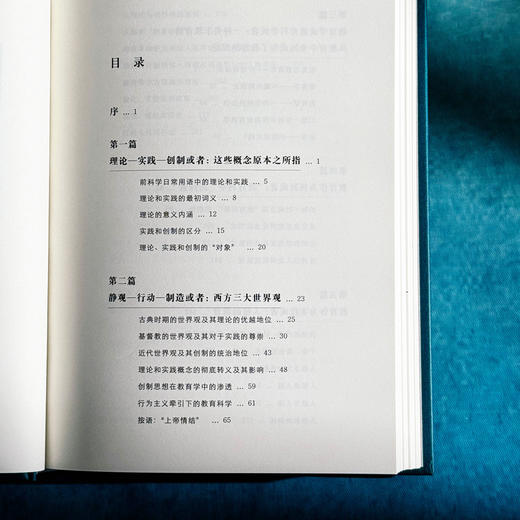 目 录
序 ... 1
第一篇
理论—实践—创制或者：这些概念原本之所指 ... 1
前科学日常用语中的理论和实践 ... 5
理论和实践的最初词义 ... 8
理论的意义内涵 ... 12
实践和创制的区分 ... 15
理论、实践和创制的“对象” ... 20
第二篇
静观—行动—制造或者：西方三大世界观 ... 23
古典时期的世界观及其理论的优越地位 ... 25
基督教的世界观及其对于实践的尊崇 ... 30
近代世界观及其创制的统治地位 ... 43
理论和实践概念的彻底转义及其影响 ... 48
创制思想在教育学中的渗透 ... 59
行为主义牵引下的教育科学 ... 61
按语：“上帝情结” ... 65